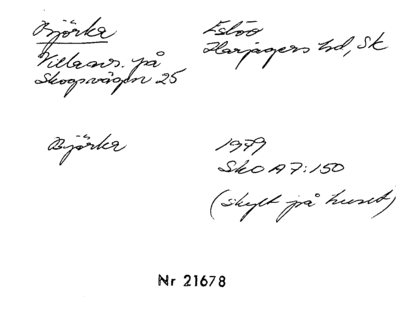 Björka
Villanv. på
Skogsvägen 25
Eslöv
Harjagers hd, Sk
Björka
1979
Sko A 7:150
(skylt på huset)
Nr 21678